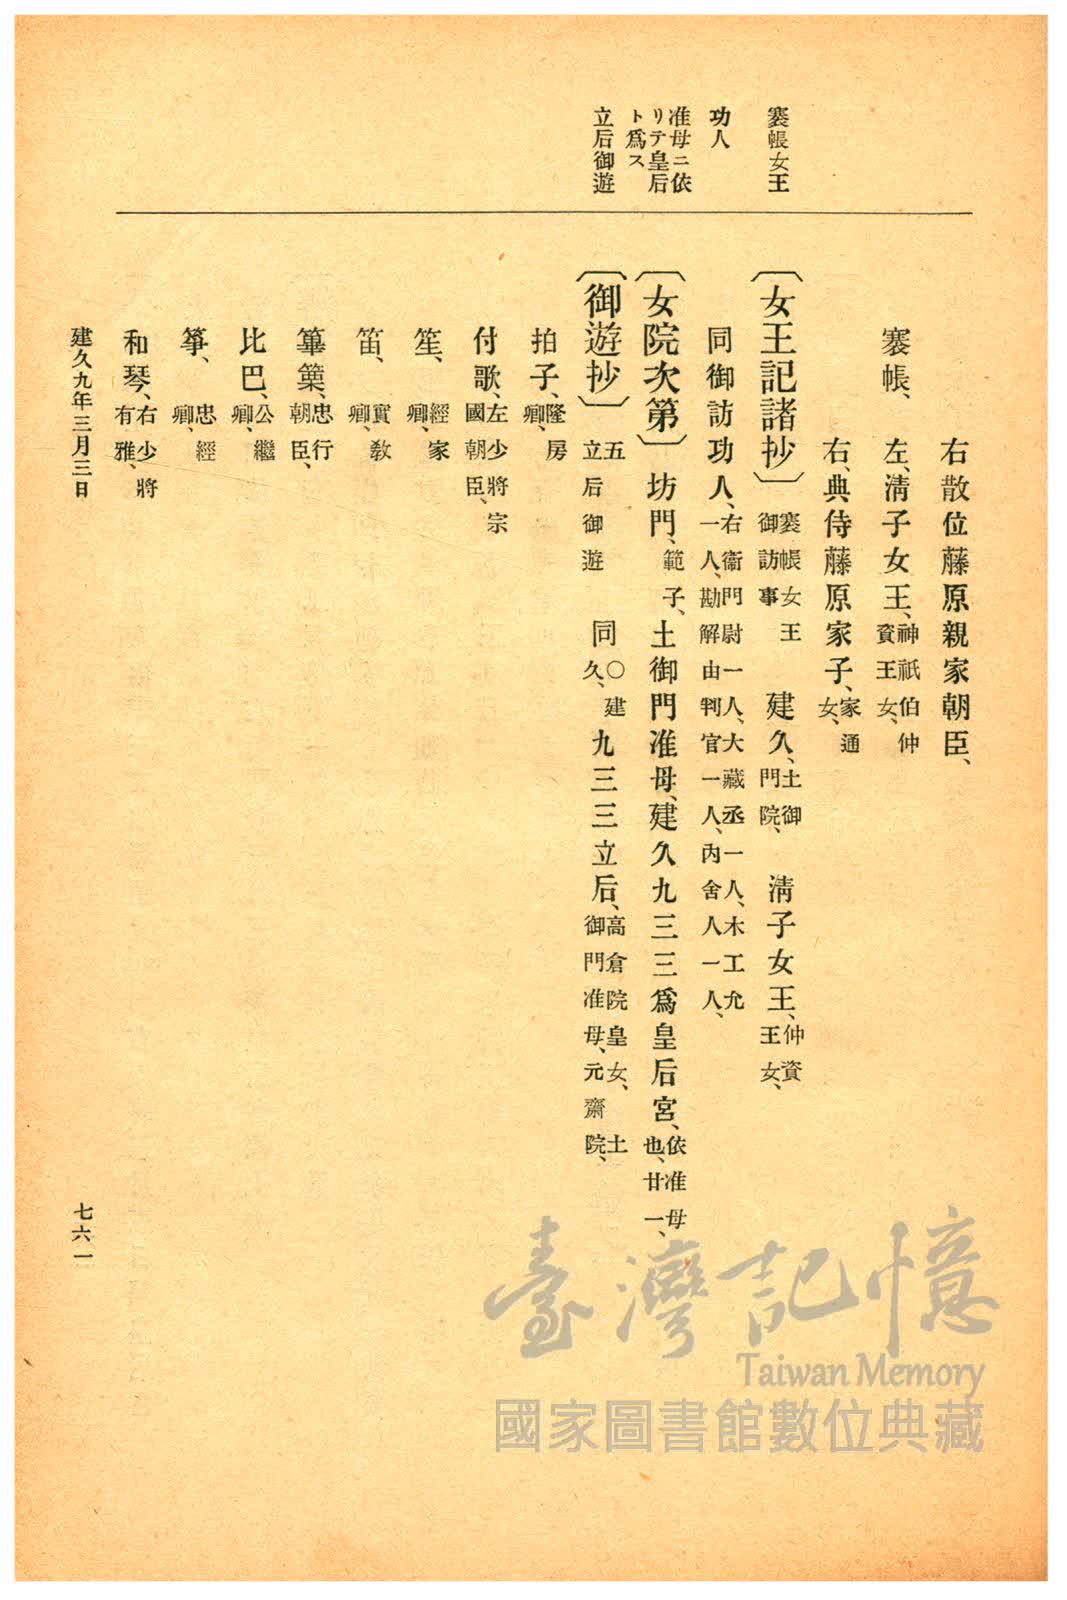 褰帳女王
功人
准母ニ依
リテ皇后
ト爲ス
立后御遊
右散位藤原親家朝臣、
褰帳、
左、淸子女王、神祇伯仲資王女、
右、典侍藤原家子、家通女、
〔女王記諸抄〕褰帳女王御訪事 建久、土御門院、 淸子女王、仲資王女、
同御訪功人、右衞門尉一人、大藏丞一人、木工允一人、勘解由判官一人、內舍人一人、
〔女院次第〕坊門、範子、土御門准母、建久九三三爲皇后宮、依准母也、廿一、
〔御遊抄〕五 立后御遊 同○建久、九三三立后、高倉院皇女、土御門准母、元齋院、
拍子、隆房卿、
付歌、左少將宗國朝臣、
笙、經家卿、
笛、實敎卿、
篳篥、忠行朝臣、
比巴、公繼卿、
箏、忠經卿、
和琴、右少將有雅、
建久九年三月三日
七六一
臺灣記憶
Taiwan Memory
國家圖書館數位典藏